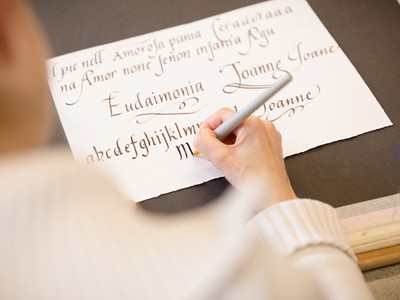 nell Amorosa pania
na Amor none senon infania
Eudaimonia Joanne Joane
Joanne
abcdefghijklm
m